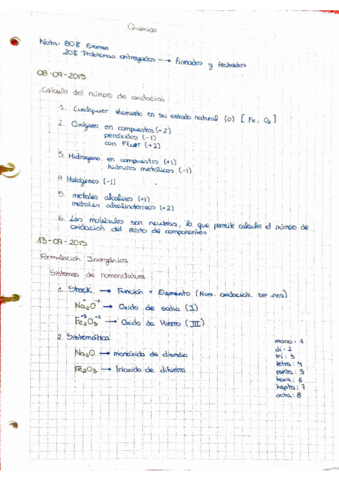 Química
Nota: 80% Examen
20% Problemas entregados → firmados y fechados
08-09-2015
Cálculo del número de oxidación
1. Cualquier elemento en su estado natural (0) [Fe, O₂]
2. Oxígeno en compuestos (-2)
peróxidos (-1)
con Fluor (+2)
3. Hidrógeno en compuestos (+1)
hidruros metálicos (-1)
4. Halógenos (-1)
5. metales alcalinos (+1)
metales alcalinotérreos (+2)
6. Las moléculas son neutras, lo que permite calcular el número de
oxidación del resto de componentes
13-09-2015
Formulación Inorgánica
Sistemas de nomenclatura
1. Stock → Función + Elemento (Num. oxidación
Na₂O → Óxido de sodio (I)
Fe₂O₃ → Óxido de Hierro (III)
2. Sistemática
Na₂O → monóxido de disodio
Fe₂O₃ → trióxido de dihierro
mono: 1
di: 2
tri: 3
tetra: 4
penta: 5
hexa: 6
hepta: 7
octa: 8